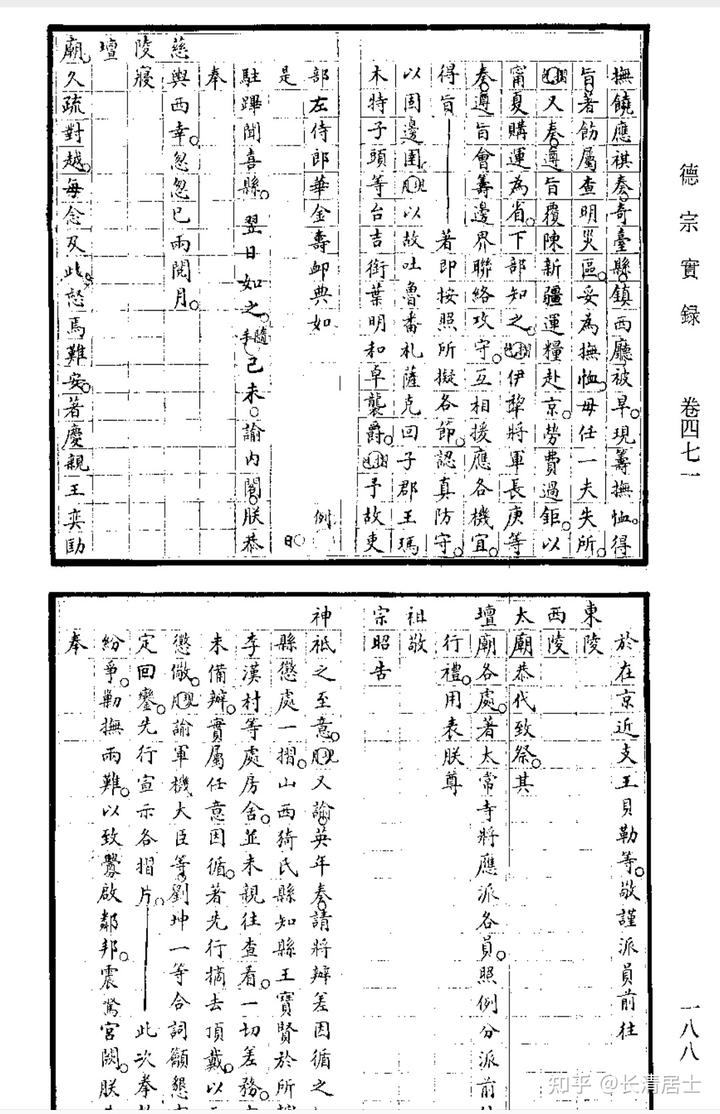 德宗實録　卷四七一
一八八
撫饒應祺奏奇臺縣鎮西廳被旱現籌撫恤得
旨著飭屬查明災區妥為撫恤毋任一夫失所
又奏遵旨覆陳新疆運糧赴京勞費過鉅以
甯夏購運為省下部知之伊犂將軍長庚等
奏遵旨會籌邊界聯絡攻守互相援應各機宜
得旨著即按照所擬各節認真防守
以固邊圉以故吐魯番札薩克回子郡王瑪
木特子頭等台吉銜葉明和卓襲爵予故吏
部左侍郎華金壽卹典如例
是日
駐蹕聞喜縣翌日如之己未諭內閣朕恭
奉
慈輿西幸忽忽已兩閱月
陵寢
壇
廟久疏對越每念及此怒焉難安著慶親王奕劻
於在京近支王貝勒等敬謹派員前往
東陵
西陵
太廟恭代致祭其
壇廟各處著太常寺將應派各員照例分派前
行禮用表朕尊
祖敬
宗昭告
神祇之至意又諭英年奏請將辦差因循之
縣懲處一摺山西猗氏縣知縣王寶賢於所
李漢村等處房舍並未親往查看一切差務
未備辦實屬任意因循著先行摘去頂戴以
懲儆諭軍機大臣等劉坤一等合詞籲懇
定回鑾先行宣示各摺片此次拳
紛爭勦撫兩難以致釁啟鄰邦震驚宮闕朕
奉
知乎 @长清居士